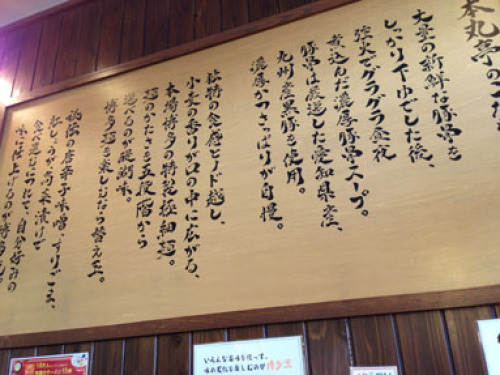 本丸亭のこだ
大量の新鮮な豚骨を
しっかり下ゆでした後、
強火でグラグラ昼夜
煮込んだ濃厚豚骨スープ。
豚骨は厳選した愛知県産、
九州産黒豚を使用。
濃厚かつさっぱりが自慢。
独特の食感とノド越し、
小麦の香りが口の中に広がる、
本場博多の特製極細麺。
麺のかたさを五段階から
選べるのが醍醐味。
博多麺を楽しむなら替え玉。
秘伝の唐辛子味噌、すりごま、
紅しょうが高菜漬けで
食べ進むにつれて、自分好みの
味に仕上げるのが博多
いろんな薬味を使って、
味の変化を楽しむのが博多流